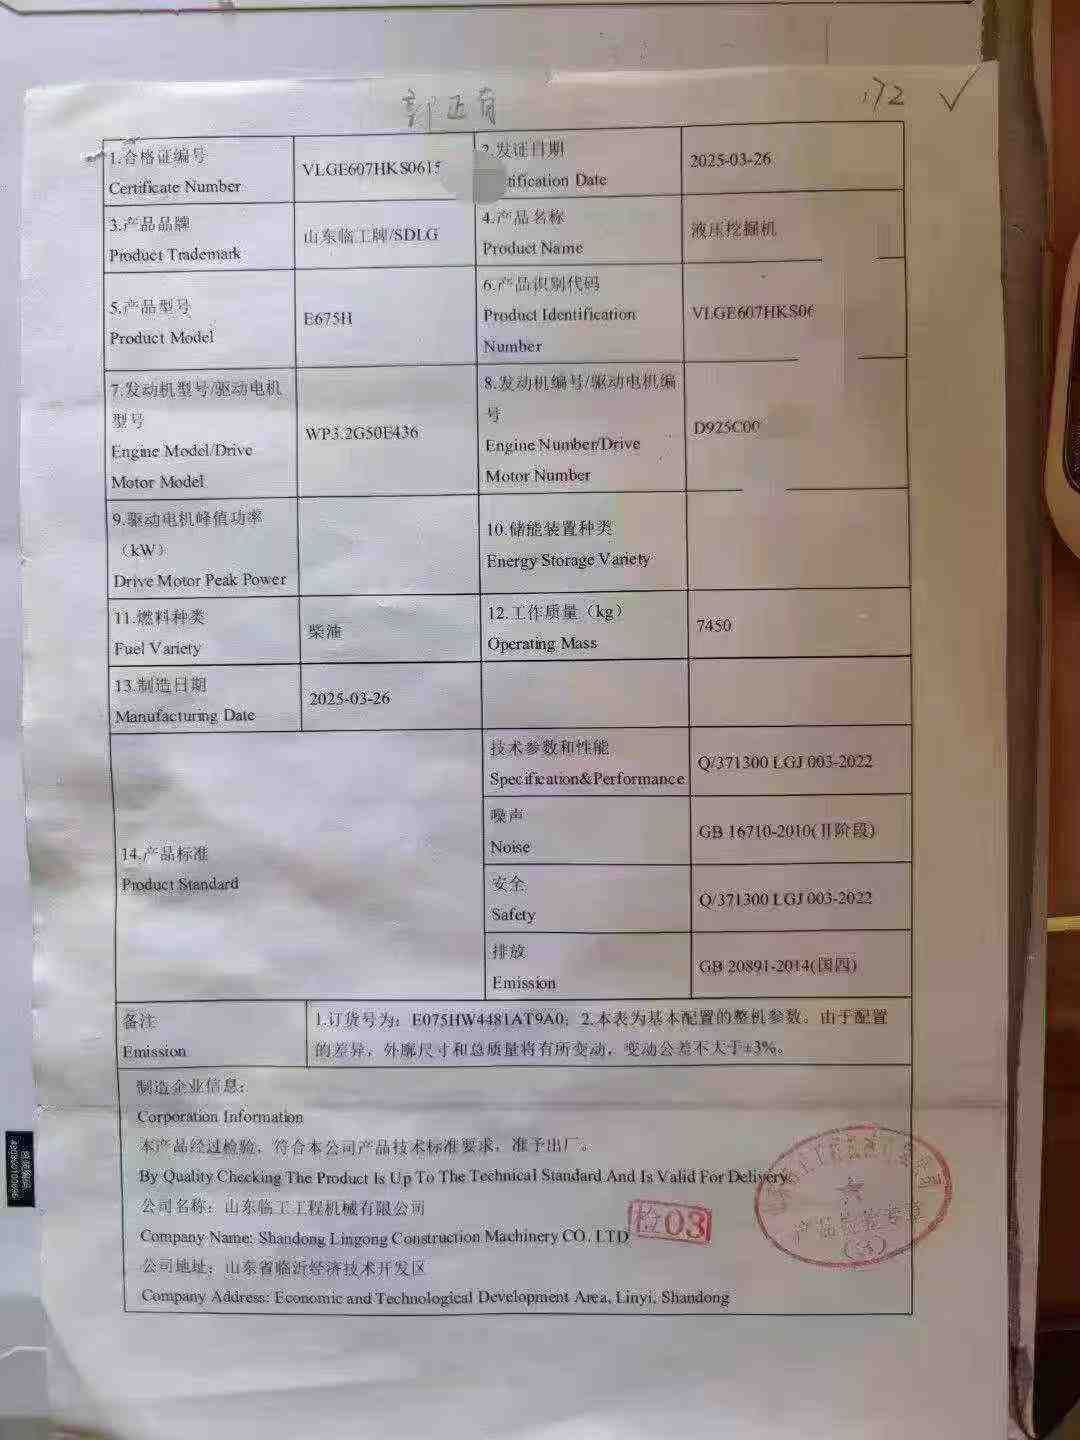 郭正有
172 ✓
1.合格证编号
Certificate Number
VLGE607HKS0615
2.发证日期
tification Date
2025-03-26
3.产品品牌
Product Trademark
山东临工牌/SDLG
4.产品名称
Product Name
液压挖掘机
5.产品型号
Product Model
E675H
6.产品识别代码
Product Identification
Number
VLGE607HKS06
7.发动机型号/驱动电机
型号
Engine Model/Drive
Motor Model
WP3.2G50E436
8.发动机编号/驱动电机编
号
Engine Number/Drive
Motor Number
D925C00
9.驱动电机峰值功率
（kW）
Drive Motor Peak Power
10.储能装置种类
Energy Storage Variety
11.燃料种类
Fuel Variety
柴油
12.工作质量（kg）
Operating Mass
7450
13.制造日期
Manufacturing Date
2025-03-26
14.产品标准
Product Standard
技术参数和性能
Specification&Performance
Q/371300 LGJ 003-2022
噪声
Noise
GB 16710-2010(Ⅱ阶段)
安全
Safety
Q/371300 LGJ 003-2022
排放
Emission
GB 20891-2014(国四)
备注
Emission
1.订货号为：E075HW4481AT9A0；2.本表为基本配置的整机参数。由于配置
的差异，外廓尺寸和总质量将有所变动，变动公差不大于±3%。
制造企业信息：
Corporation Information
本产品经过检验，符合本公司产品技术标准要求，准予出厂。
By Quality Checking The Product Is Up To The Technical Standard And Is Valid For Delivery.
公司名称：山东临工工程机械有限公司
Company Name: Shandong Lingong Construction Machinery CO. LTD
检03
产品检验专章
公司地址：山东省临沂经济技术开发区
Company Address: Economic and Technological Development Area, Linyi, Shandong